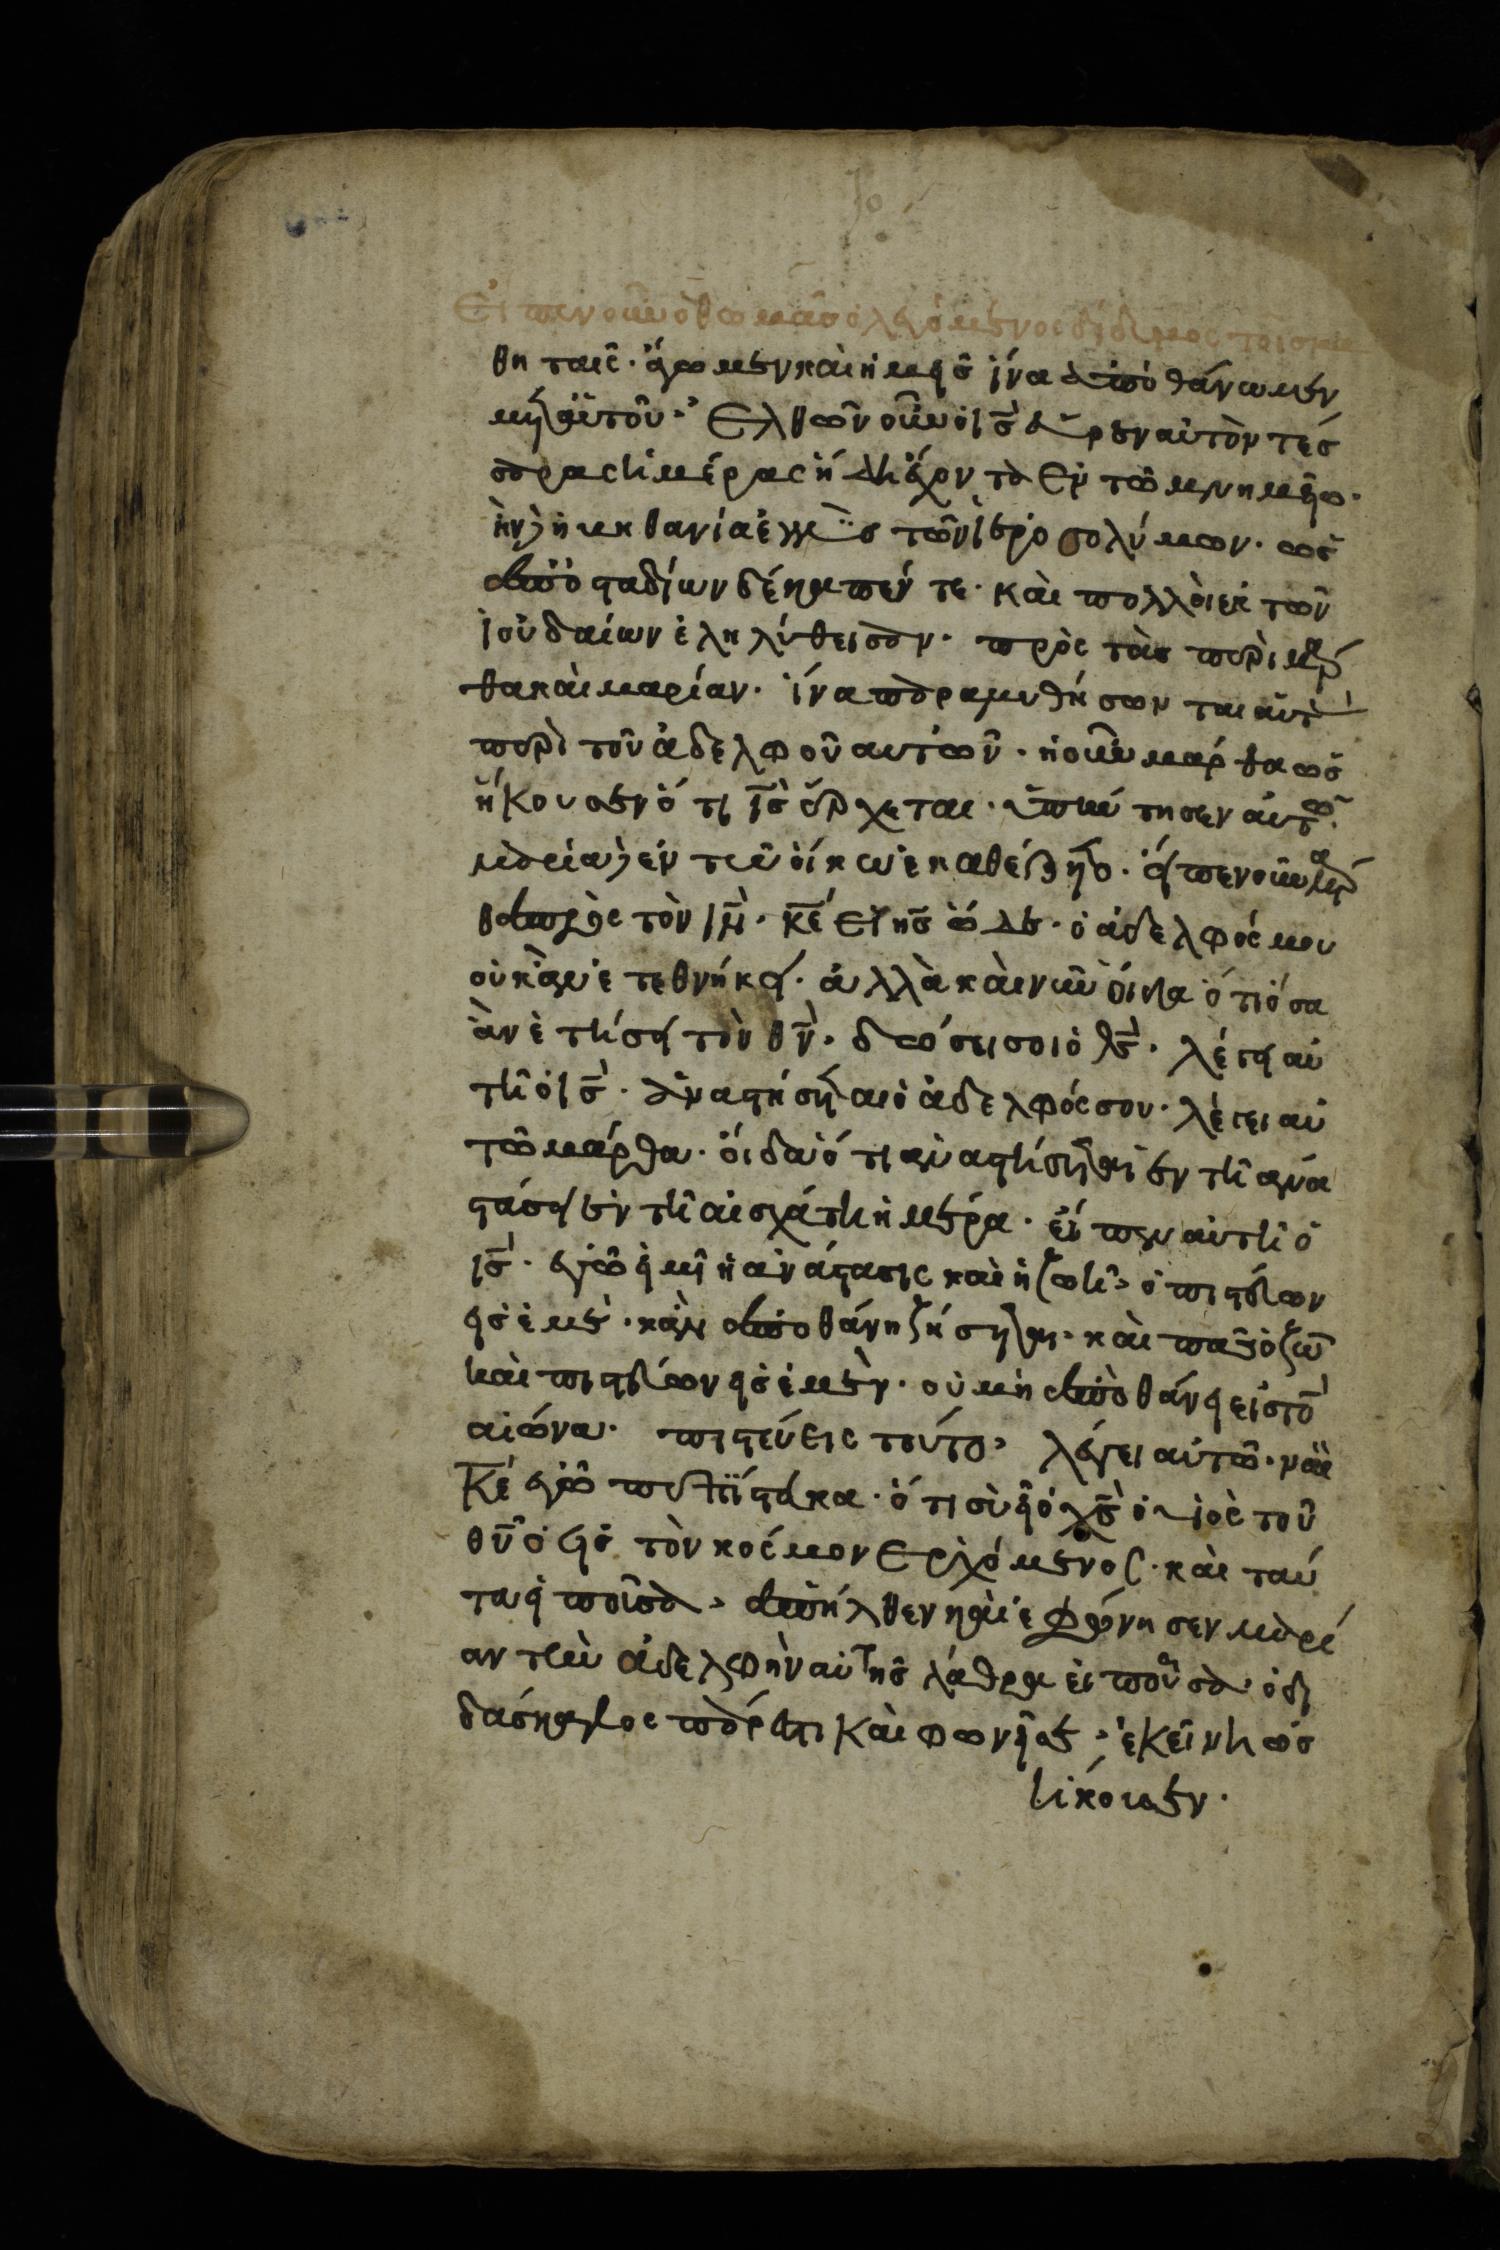 Εἶπεν οὖν ὁ θωμᾶσ ὁ λεγόμενος δίδιμος τοῖς μα
θηταῖς· ἄγωμεν καὶ ἡμεῖσ ἵνα ἀποθάνωμεν
μετ αὐτοῦ· Ελθῶν οὖν ὁ ισ εὗρεν αὐτὸν τέσ
σαρας ἡμέρας ἤδη ἔχοντα Εν τῶ μνημείω·
ἦν δὲ ἡ βηθανία ἐγγὺσ τῶν ἱεροσολύμων· ὡσ
ἀπὸ σταδίων δέκαπέντε· καὶ πολλοὶ ἐκ τῶν
ἰουδαίων ἐληλύθεισαν· πρὸς τὰσ περὶ μάρ
θα καὶ μαρίαν· ἵνα παραμυθήσωνται αὐτὰς
περὶ τοῦ ἀδελφοῦ αυτῶν· ἡ οὖν μάρθα ὡσ
ἤκουσεν ὅτι ισ ἔρχεται· ὑπήντησεν αὐτῶ·
μαρία δὲ ἐν τῶ οἴκω ἐκαθέζετο· εἶπεν οὖν μάρ
θα πρὸς τὸν ιν· κε Εἶ ἦσ ὧδε· ὁ ἀδελφός μου
οὐκ ἂν ἐτεθνήκει· ἀλλὰ καὶ νῦν οἶδα ὅτι ὅσα
ἂν ἐτήση τὸν θν· δώσει σοι ὁ θσ· λέγει αὐ
τῆ ὁ ισ· ἀναστήσεται ὁ ἀδελφός σου· λέγει αὐ
τῶ μάρθα· οἶδα ὅτι αναστήσεται ἐν τῆ ανα
στάσει ἐν τῆ αἰσχάτη ἡμέρα· εἶπεν αὐτῆ ὁ
ισ· εγώ εἰμι ἡ ἀνάστασις καὶ ἡ ζωή· ὁ πιστεύων
εἰσ ἐμὲ· κἂν ἀποθάνη ζήσεται· καὶ πᾶς ὁ ζῶν
καὶ πιστεύων εἰσ ἐμὲν· οὐ μὴ ἀποθάνει εἰσ τὸν
αἰώνα· πιστεύεις τοῦτο· λέγει αὐτῶ· ναὶ
Κε εγώ πεπίστευκα· ὅτι σὺ εἶ ὁ χσ ὁ υἱὸς τοῦ
θυ ὁ εἰσ τὸν κοσμον Ερχόμενος· καὶ ταύ
τα εἰποῦσα· ἀπῆλθεν καὶ ἐφώνησεν μαρί
αν τὴν ἀδελφὴν αὐτῆσ λάθρα εἰποῦσα· ὁ δι
δάσκαλος πάρεστι Καὶ φωνεῖ σε· ἐκείνη ὡσ
ἤκουσεν·